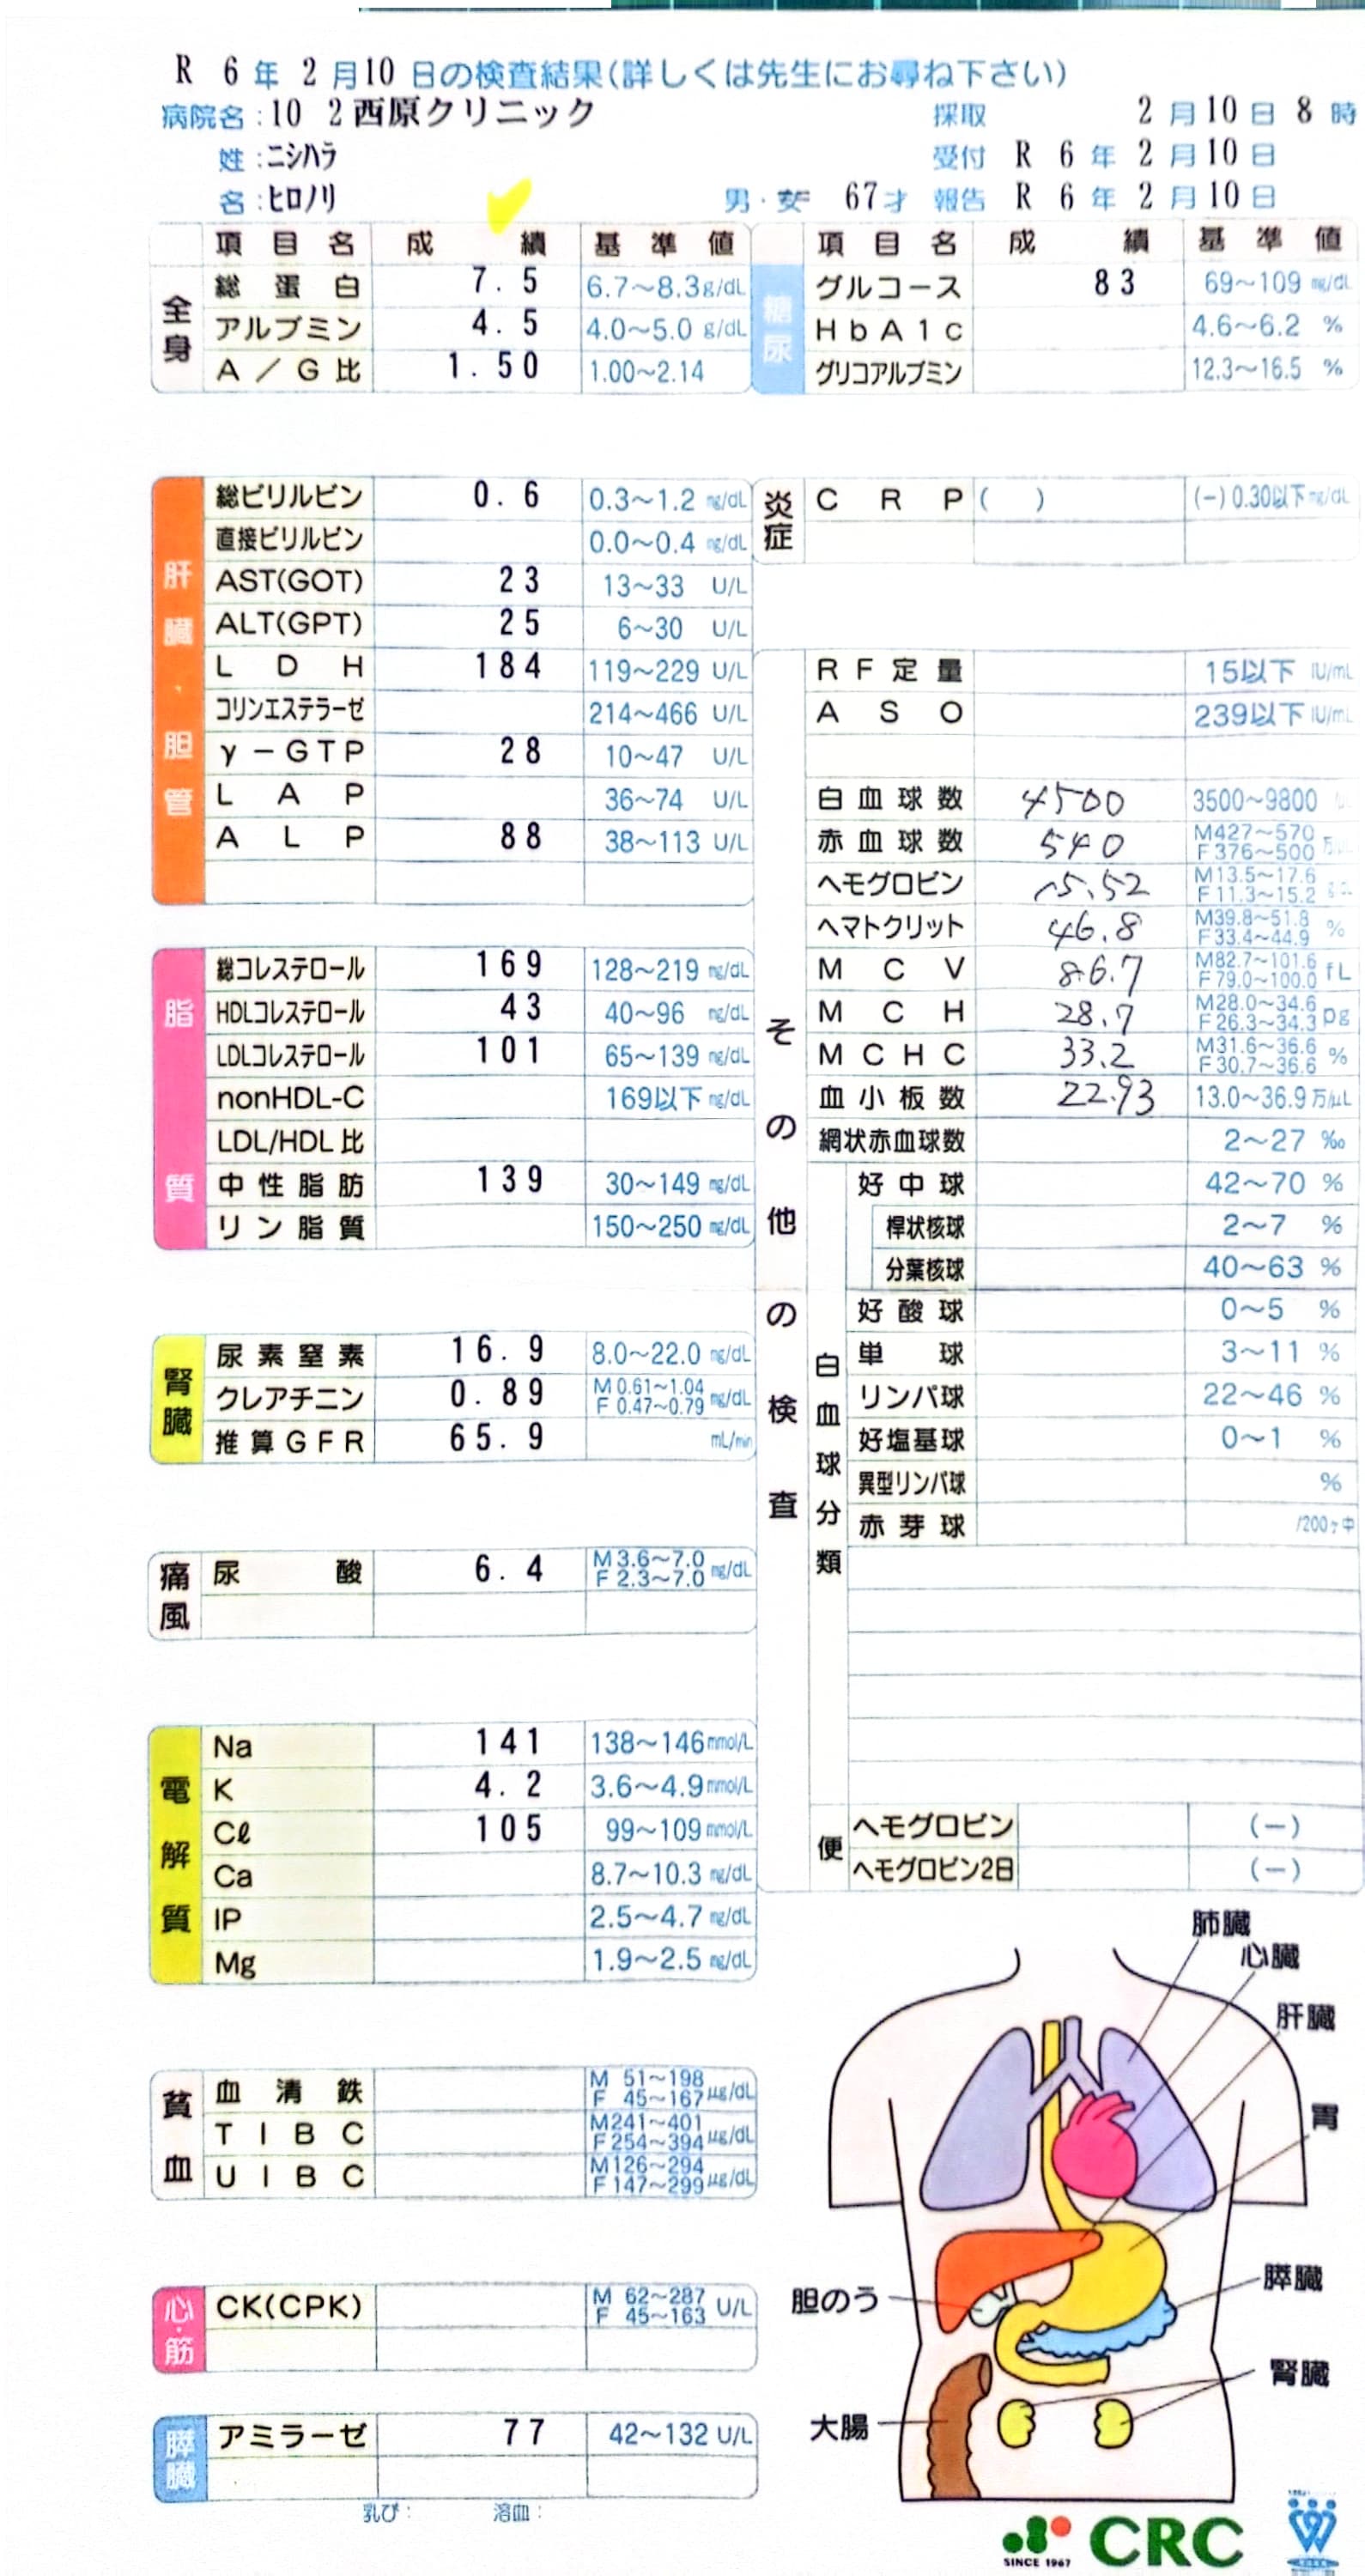 R 6年 2月10日の検査結果(詳しくは先生にお尋ね下さい)
病院名:10 2西原クリニック 採取 2月10日 8時
姓:ニシハラ 受付 R 6年 2月10日
名:ヒロノリ 男・女 67才 報告 R 6年 2月10日
項目名 成績 基準値
全身
総蛋白 7.5 6.7〜8.3g/dL
アルブミン 4.5 4.0〜5.0 g/dL
A/G比 1.50 1.00〜2.14
肝臓、胆管
総ビリルビン 0.6 0.3〜1.2 mg/dL
直接ビリルビン 0.0〜0.4 mg/dL
AST(GOT) 23 13〜33 U/L
ALT(GPT) 25 6〜30 U/L
LDH 184 119〜229 U/L
コリンエステラーゼ 214〜466 U/L
γ-GTP 28 10〜47 U/L
LAP 36〜74 U/L
ALP 88 38〜113 U/L
脂質
総コレステロール 169 128〜219 mg/dL
HDLコレステロール 43 40〜96 mg/dL
LDLコレステロール 101 65〜139 mg/dL
nonHDL-C 169以下 mg/dL
LDL/HDL比
中性脂肪 139 30〜149 mg/dL
リン脂質 150〜250 mg/dL
腎臓
尿素窒素 16.9 8.0〜22.0 mg/dL
クレアチニン 0.89 M 0.61〜1.04 F 0.47〜0.79 mg/dL
推算GFR 65.9 mL/min
痛風
尿酸 6.4 M 3.6〜7.0 F 2.3〜7.0 mg/dL
電解質
Na 141 138〜146 mmol/L
K 4.2 3.6〜4.9 mmol/L
Cℓ 105 99〜109 mmol/L
Ca 8.7〜10.3 mg/dL
IP 2.5〜4.7 mg/dL
Mg 1.9〜2.5 mg/dL
貧血
血清鉄 M 51〜198 F 45〜167 μg/dL
TIBC M241〜401 F254〜394 μg/dL
UIBC M126〜294 F147〜299 μg/dL
心・筋
CK(CPK) M 62〜287 F 45〜163 U/L
膵臓
アミラーゼ 77 42〜132 U/L
乳び: 溶血:
項目名 成績 基準値
糖尿
グルコース 83 69〜109 mg/dL
HbA1c 4.6〜6.2 %
グリコアルブミン 12.3〜16.5 %
炎症
CRP ( ) (-) 0.30以下 mg/dL
その他の検査
RF定量 15以下 IU/mL
ASO 239以下 IU/mL
白血球数 4500 3500〜9800
赤血球数 540 M427〜570 F376〜500
ヘモグロビン 15.52 M13.5〜17.6 F11.3〜15.2
ヘマトクリット 46.8 M39.8〜51.8 F33.4〜44.9 %
MCV 86.7 M82.7〜101.6 F79.0〜100.0 fL
MCH 28.7 M28.0〜34.6 F26.3〜34.3 pg
MCHC 33.2 M31.6〜36.6 F30.7〜36.6 %
血小板数 22.93 13.0〜36.9 万/μL
網状赤血球数 2〜27 ‰
白血球分類
好中球 42〜70 %
桿状核球 2〜7 %
分葉核球 40〜63 %
好酸球 0〜5 %
単球 3〜11 %
リンパ球 22〜46 %
好塩基球 0〜1 %
異型リンパ球 %
赤芽球 /200ヶ中
便
ヘモグロビン (-)
ヘモグロビン2日 (-)
肺臓
心臓
肝臓
胃
胆のう
膵臓
腎臓
大腸
CRC
SINCE 1967